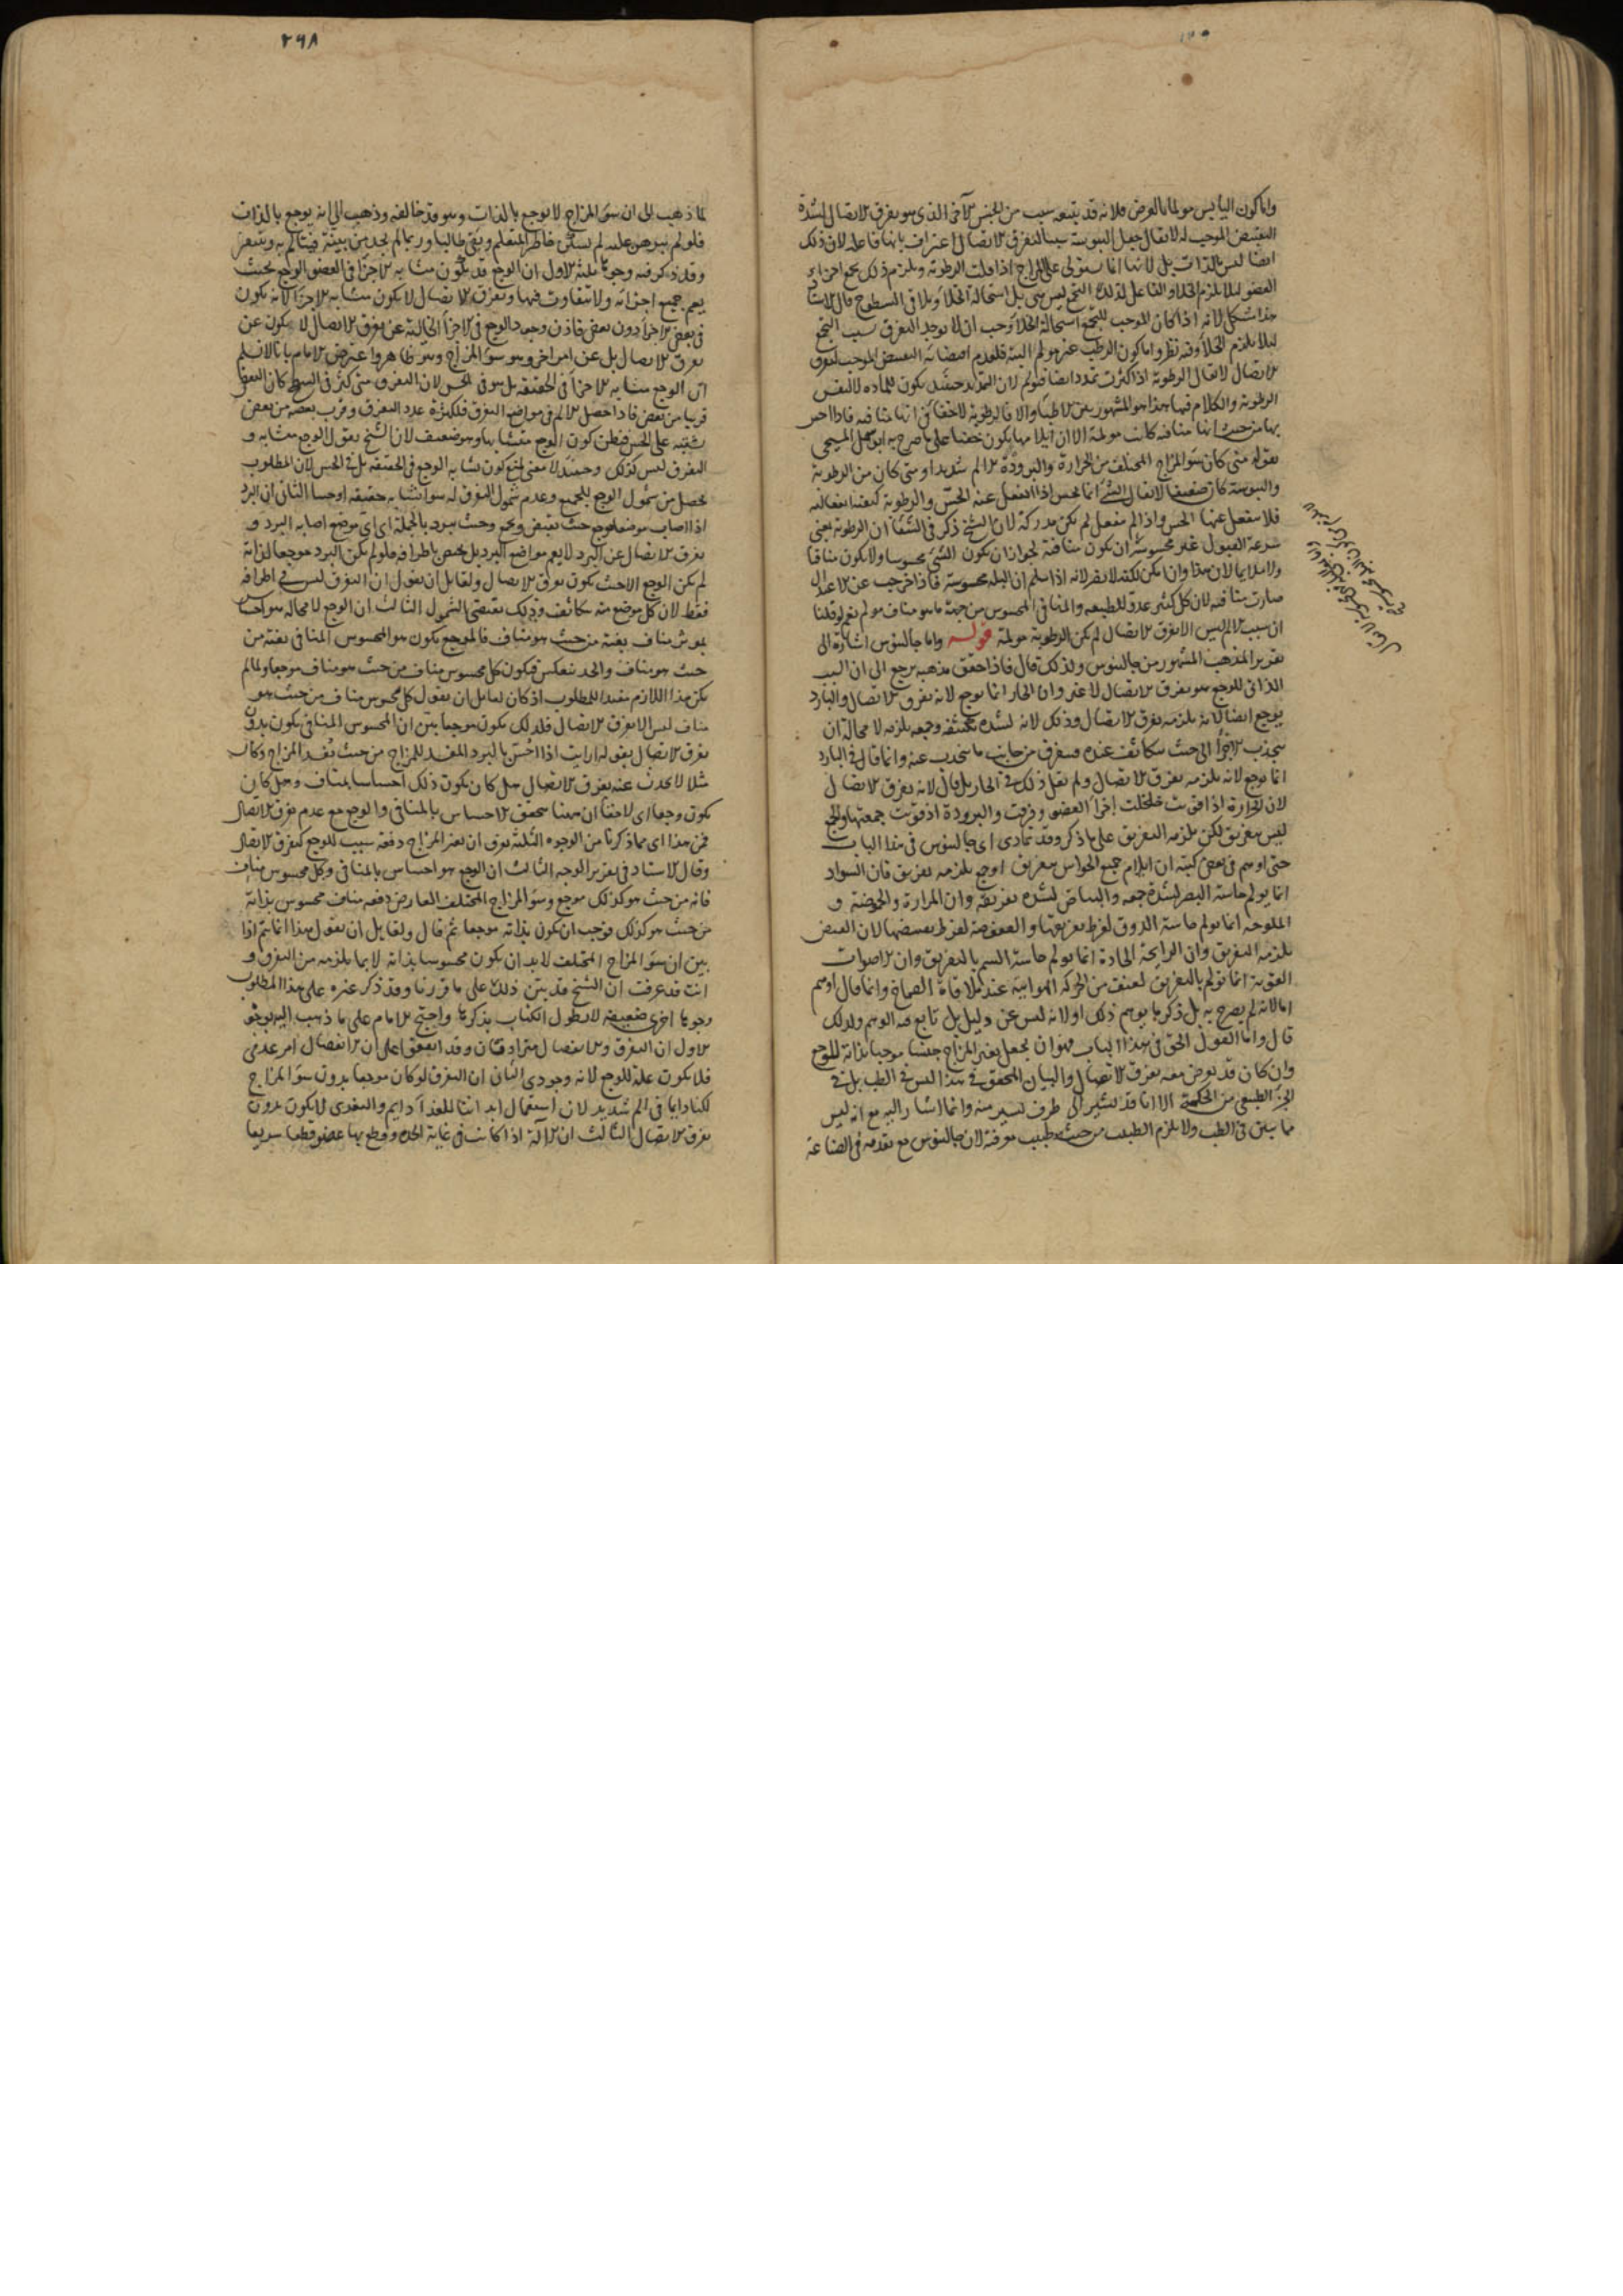 واما كون اليابس مولما بالعرض فلانه قد يتبعه سبب من الجنس الآخر الذي هو تفرق الاتصال لشدة
التقبيض الموجب له لا يقال جعل اليبوسة سببا لتفرق الاتصال اعتراف بانها فاعلة لان ذلك
ايضا ليس بالذات بل لانها انما يستولي على المزاج اذا قلت الرطوبة ويلزم ذلك تجمع اجزاء
العضو لئلا يلزم الخلا والفاعل لذلك التجمع ليس هي بل استحالة الخلا وتلاقي السطوح قال الاستاد
هذا مشكل لانه اذا كان الموجب للتجمع استحالة الخلا وجب ان لا يوجد التفرق بسبب التجمع
لئلا يلزم الخلا وفيه نظر واما كون الرطب غير مولم البتة فلعدم اقتضائه التقبيض الموجب لتفرق
الاتصال لا يقال الرطوبة اذا كثرت تمدد ايضا فتولم لان التمديد حينئذ يكون للمادة لا لنفس
الرطوبة والكلام فيها هذا هو المشهور بين الاطبا والا فالرطوبة لا خفا في انها منافيه فاذا احس
بها من حيث انها منافيه كانت مولمة الا ان ايلامها يكون خفيا على ما صرح به ابو سهل المسيحي
بقوله متى كان سو المزاج المختلف من الحرارة والبرودة الالم شديدا ومتى كان من الرطوبة
واليبوسة كان ضعيفا لا يقال الشئ انما يحس اذا انفعل عنه الحس والرطوبة كيفية انفعالية
فلا ينفعل عنها الحس واذا لم ينفعل لم تكن مدركة لان الشيخ ذكر في الشفا ان الرطوبة بمعنى
سرعة القبول غير محسوسة ان تكون منافية لجواز ان يكون الشئ محسوسا ولا يكون منافيا
ولا ملايما لان هذا وان امكن لكنه لا يضر لانه اذا سلم ان البلة محسوسة فاذا خرجت عن الاعتدال
صارت منافيه لان كل كثير عدو للطبيعه والمنافي المحسوس من جهة ما هو مناف مولم نعم لو قلنا
ان سبب الالم ليس الا تفرق الاتصال لم تكن الرطوبة مولمة قوله واما جالينوس اشارة الى
تقرير المذهب المشهور من جالينوس ولذلك قال فاذا حقق مذهبه يرجع الى ان السبب
الذاتي للوجع هو تفرق الاتصال لا غير وان الحار انما يوجع لانه يفرق الاتصال والبارد
يوجع ايضا لانه يلزمه تفرق الاتصال وذلك لانه لشدة تكثيفه وجمعه يلزمه لا محالة ان
ينجذب الاجزأ الى حيث يتكاثف عنده فيتفرق من جانب ما ينجذب عنه وانما قال في البارد
انما يوجع لانه يلزمه تفرق الاتصال ولم يقل ذلك في الحار بل قال لانه يفرق الاتصال
لان الحرارة اذا قويت خلخلت اجزأ العضو وفرقت والبرودة اذا قويت جمعتها والجمع
ليس بتفريق لكن يلزمه التفريق على ما ذكر وقد تمادى اى جالينوس في هذا الباب
حتى اوهم في بعض كتبه ان ايلام جميع الحواس بتفريق او جمع يلزمه تفريق فان السواد
انما يولم حاسة البصر لشدة جمعه والبياض لشدة تفريقه وان المرارة والحموضة و
الملوحة انما تولم حاسة الذوق لفرط تفريقها والعفوصة لفرط تقبيضها لان القبض
يلزمه التفريق وان الرايحة الحادة انما تولم حاسة الشم بالتفريق وان الاصوات
القوية انما تولم بالتفريق لعنف من الحركة الهوائية عند ملاقاة الصماخ وانما قال اوهم
اما لانه لم يصرح به بل ذكر ما يوهم ذلك او لانه ليس عن دليل بل تابع فيه الوهم ولذلك
قال واما القول الحق في هذا الباب فهو ان يجعل تغير المزاج جنسا موجبا بذاته للوجع
وان كان قد يعرض معه تفرق الاتصال والبيان المحقق في هذا ليس في الطب بل في
الجزء الطبيعي من الحكمة الا انا قد نشير الى طرف يسير منه وانما اشار اليه مع انه ليس
مما يبين في الطب ولا يلزم الطبيب من حيث هو طبيب معرفته لان جالينوس مع تقدمه في الصناعة
٢٩٨
لما ذهب الى ان سو المزاج لا يوجع بالذات وهو قد خالفه وذهب الى انه يوجع بالذات
فلو لم يبرهن عليه لم يسكن خاطر المتعلم وبقي طالبا وربما لم يجد من يبينه فيتالم به ويتنفر
وقد ذكر فيه وجوها ثلثة الاول ان الوجع قد يكون متشابه الاجزأ في العضو الوجع بحيث
يعم جميع اجزائه ولا يتفاوت فيها وتفرق الاتصال لا يكون متشابه الاجزأ لانه يكون
في بعض الاجزأ دون بعض فاذن وجود الوجع في الاجزأ الخالية عن تفرق الاتصال لا يكون عن
تفرق الاتصال بل عن امر اخر وهو سو المزاج وهو ظاهر واعترض الامام بانا لا نسلم
ان الوجع متشابه الاجزأ في الحقيقه بل هو في الحس لان التفرق متى كثر في السطح كان البعض
قريبا من بعض فاذا حصل الالم في مواضع التفرق فلكثرة عدد التفرق وقرب بعضه من بعض
يشتبه على الحس فيظن كون الوجع متشابها وهو ضعيف لان الشيخ يقول الوجع متشابه و
التفرق ليس كذلك وحينئذ لا معنى لمنع كون تشابه الوجع في الحقيقه بل في الحس لان المطلوب
يحصل من شمول الوجع للجميع وعدم شمول التفرق له سوا تشابه حقيقة او حسا الثاني ان البرد
اذا اصاب موضعا يوجع حيث يقبض ويجمع وحيث يبرد بالجملة اى اى موضع اصابه البرد و
تفرق الاتصال عن البرد لا يعم مواضع البرد بل يختص باطرافه فلو لم يكن البرد موجعا لذاته
لم يكن الوجع الا حيث يكون تفرق الاتصال ولقايل ان يقول ان التفرق ليس في اطرافه
فقط لان كل موضع منه يتكاثف وذلك يقتضي الشمول الثالث ان الوجع لا محالة هو احساس
بموثر مناف بغتة من حيث هو مناف فالموجع يكون هو المحسوس المنافي بغتة من
حيث هو مناف والحد ينعكس فيكون كل محسوس مناف من حيث هو مناف موجعا ولما لم
يكن هذا اللازم مفيدا للمطلوب اذ كان لقايل ان يقول كل محسوس مناف من حيث هو
مناف ليس الا تفرق الاتصال فلذلك يكون موجعا بين ان المحسوس المنافي يكون بدون
تفرق الاتصال بقوله ارايت اذا احس بالبرد المفسد للمزاج من حيث يفسد المزاج وكان
مثلا لا يحدث عنه تفرق الاتصال هل كان يكون ذلك احساسا بمناف وهل كان
يكون وجعا اى لا خفا ان ههنا يتحقق الاحساس بالمنافي والوجع مع عدم تفرق الاتصال
فمن هذا اى مما ذكرنا من الوجوه الثلثة يعرف ان تغير المزاج دفعة سبب للوجع كتفرق الاتصال
وقال الاستاد في تقرير الوجه الثالث ان الوجع هو احساس بالمنافي وكل محسوس مناف
فانه من حيث هو كذلك موجع وسو المزاج المختلف العارض دفعة مناف محسوس بذاته
من حيث هو كذلك فوجب ان يكون بذاته موجعا ثم قال ولقايل ان يقول هذا انما يتم اذا
بين ان سو المزاج المختلف لا بد ان يكون محسوسا بذاته لا بما يلزمه من التفرق و
انت قد عرفت ان الشيخ قد بين ذلك على ما قررنا وقد ذكر غيره على هذا المطلوب
وجوها اخرى ضعيفة لا نطول الكتاب بذكرها واحتج الامام على ما ذهب اليه بوجوه
الاول ان التفرق والانفصال مترادفان وقد اتفقوا على ان الانفصال امر عدمي
فلا يكون علة للوجع لانه وجودي الثاني ان التفرق لو كان موجعا بدون سو المزاج
لكنا دايما في الم شديد لان استعمال ابداننا للغذا دايم والتغذي لا يكون بدون
تفرق الاتصال الثالث ان الآلة اذا كانت في غاية الحدة وقطع بها عضو قطعا سريعا